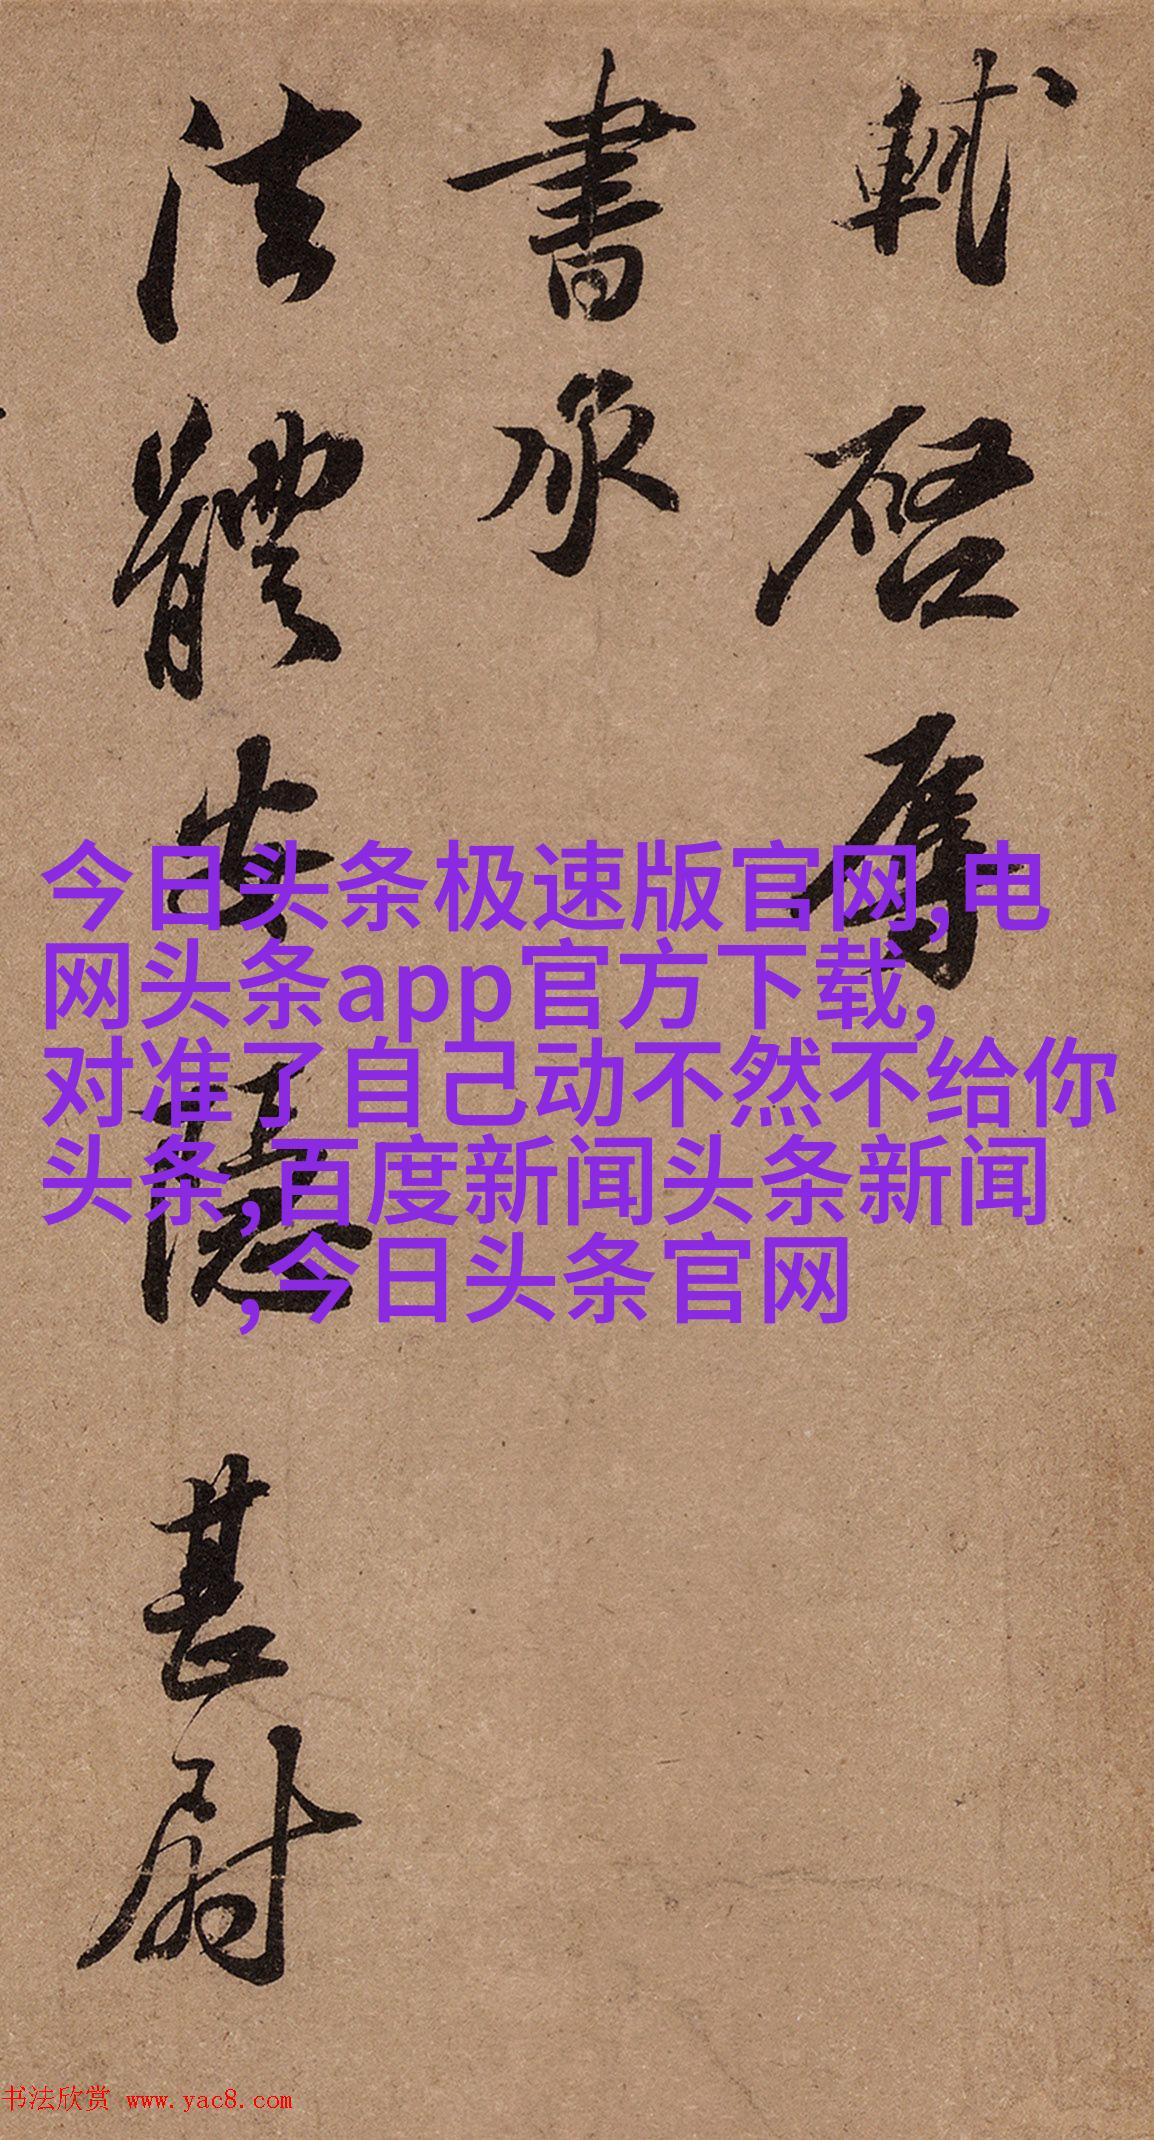 軾啓辱
書承
法體安隱甚慰
今日头条极速版官网,电
网头条app官方下载,
对准了自己动不然不给你
头条,百度新闻头条新闻
,今日头条官网
书法欣赏 www.yac8.com